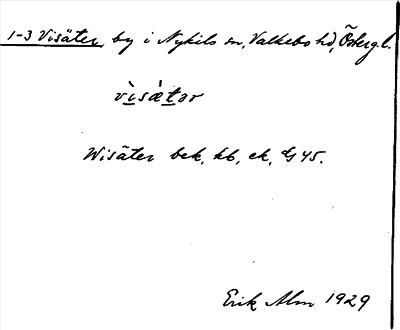 1-3 Visäter, by i Nykils sn, Valkebo hd, Österg.l.
vìsǽtər
Wisäter bek, kb, ek, G45.
Erik Alm 1929